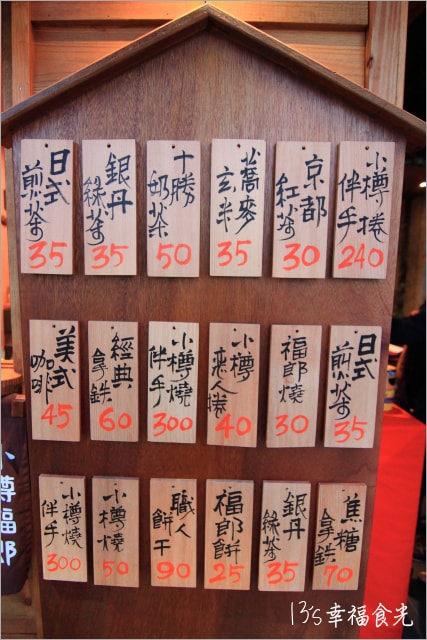 日式
煎茶
35
銀丹
綠茶
35
十勝
奶茶
50
蕎麥
玄米
35
京都
紅茶
30
小樽捲
伴手
240
美式
咖啡
45
經典
拿鉄
60
小樽燒
伴手
300
小樽
恋人捲
40
福郎燒
30
日式
煎茶
35
小樽燒
伴手
300
小樽燒
50
職人
餅干
90
福郎餅
25
銀丹
綠茶
35
焦糖
拿鉄
70
小樽福郎
13's幸福食光